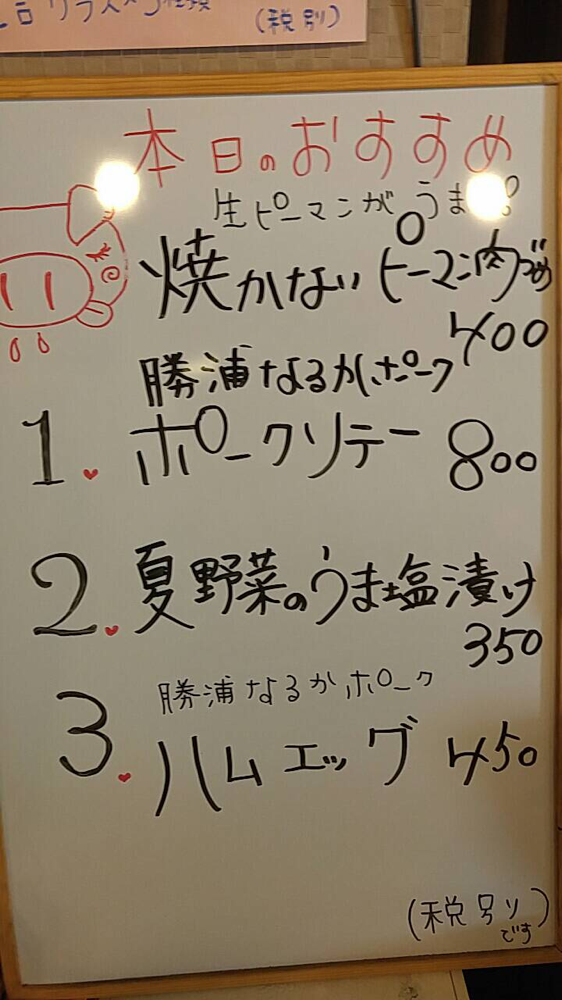 グラスメ
(税別)
本日のおすすめ
生ピーマンがうま
焼かないピーマン肉づめ
400
勝浦なるかポーク
1. ポークソテー 800
2. 夏野菜のうま塩漬け
350
勝浦なるかポーク
3. ハムエッグ 450
(税別り
です)